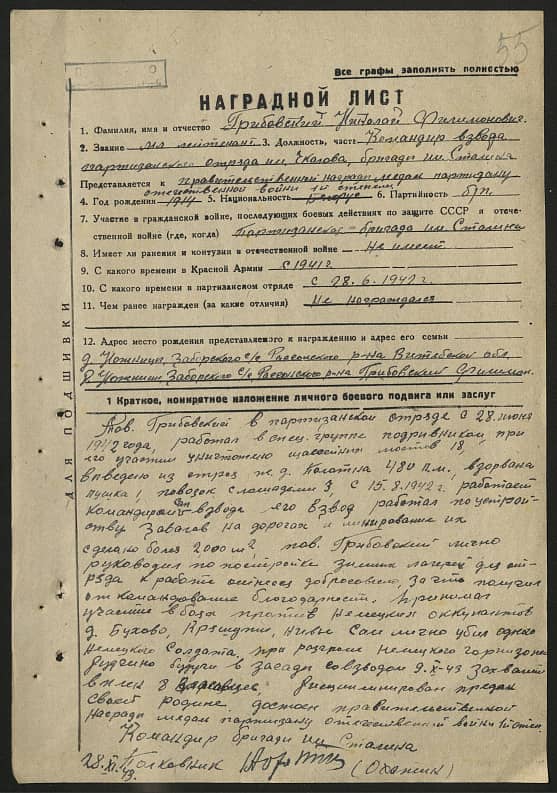 55
Все графы заполнять полностью
НАГРАДНОЙ ЛИСТ
1. Фамилия, имя и отчество Грибовский Николай Филимонович
2. Звание мл лейтенант 3. Должность, часть Командир взвода
партизанского отряда им. Чкалова, бригады им. Сталина
Представляется к правительственной награде медаль партизану
отечественной войны 1й степени
4. Год рождения 1914 5. Национальность Белорус 6. Партийность б/п.
7. Участие в гражданской войне, последующих боевых действиях по защите СССР и отече-
ственной войне (где, когда) Партизанская бригада им Сталина
8. Имеет ли ранения и контузии в отечественной войне Не имеет
9. С какого времени в Красной Армии с 1941 г.
10. С какого времени в партизанском отряде с 28.6.1942 г.
11. Чем ранее награжден (за какие отличия) Не награждался
12. Адрес место рождения представляемого к награждению и адрес его семьи
Заборского с/с Россонского р-на Витебской обл.
Заборского с/с Россонского р-на Грибовский Филимон.
ДЛЯ ПОДШИВКИ
1 Краткое, конкретное изложение личного боевого подвига или заслуг
Тов. Грибовский в партизанском отряде с 28. июня
1942 года, работал в спец. группе подрывником, при
его участии уничтожено мостов 18,
выведено из строя ж.д. полотна 480 п.м., взорвана
пушка 1, повозок с лошадями 3, с 15.8.1942 г. работает
Командиром взвода его взвод работал по устрой-
ству завалов на дорогах и минирование их
сделано более 2000 м², тов. Грибовский лично
руководил по постройке зимних лагерей для от-
ряда к работе добросовестно, за что получил
от командование благодарность. Принимал
участие в боях против Немецких оккупантов
д. Бухово, Нивы Сам лично убил одного
Немецкого Солдата, при разгроме Немецкого гарнизона
будучи в засаде со взводом 9.X-43 Захватил
в плен 8 Дисциплинирован предан
своей родине. достоин правительственной
награды медаль партизану отечественной войны 1й степ.
Командир бригады им Сталина
28.XI.43. Полковник (Охотин)